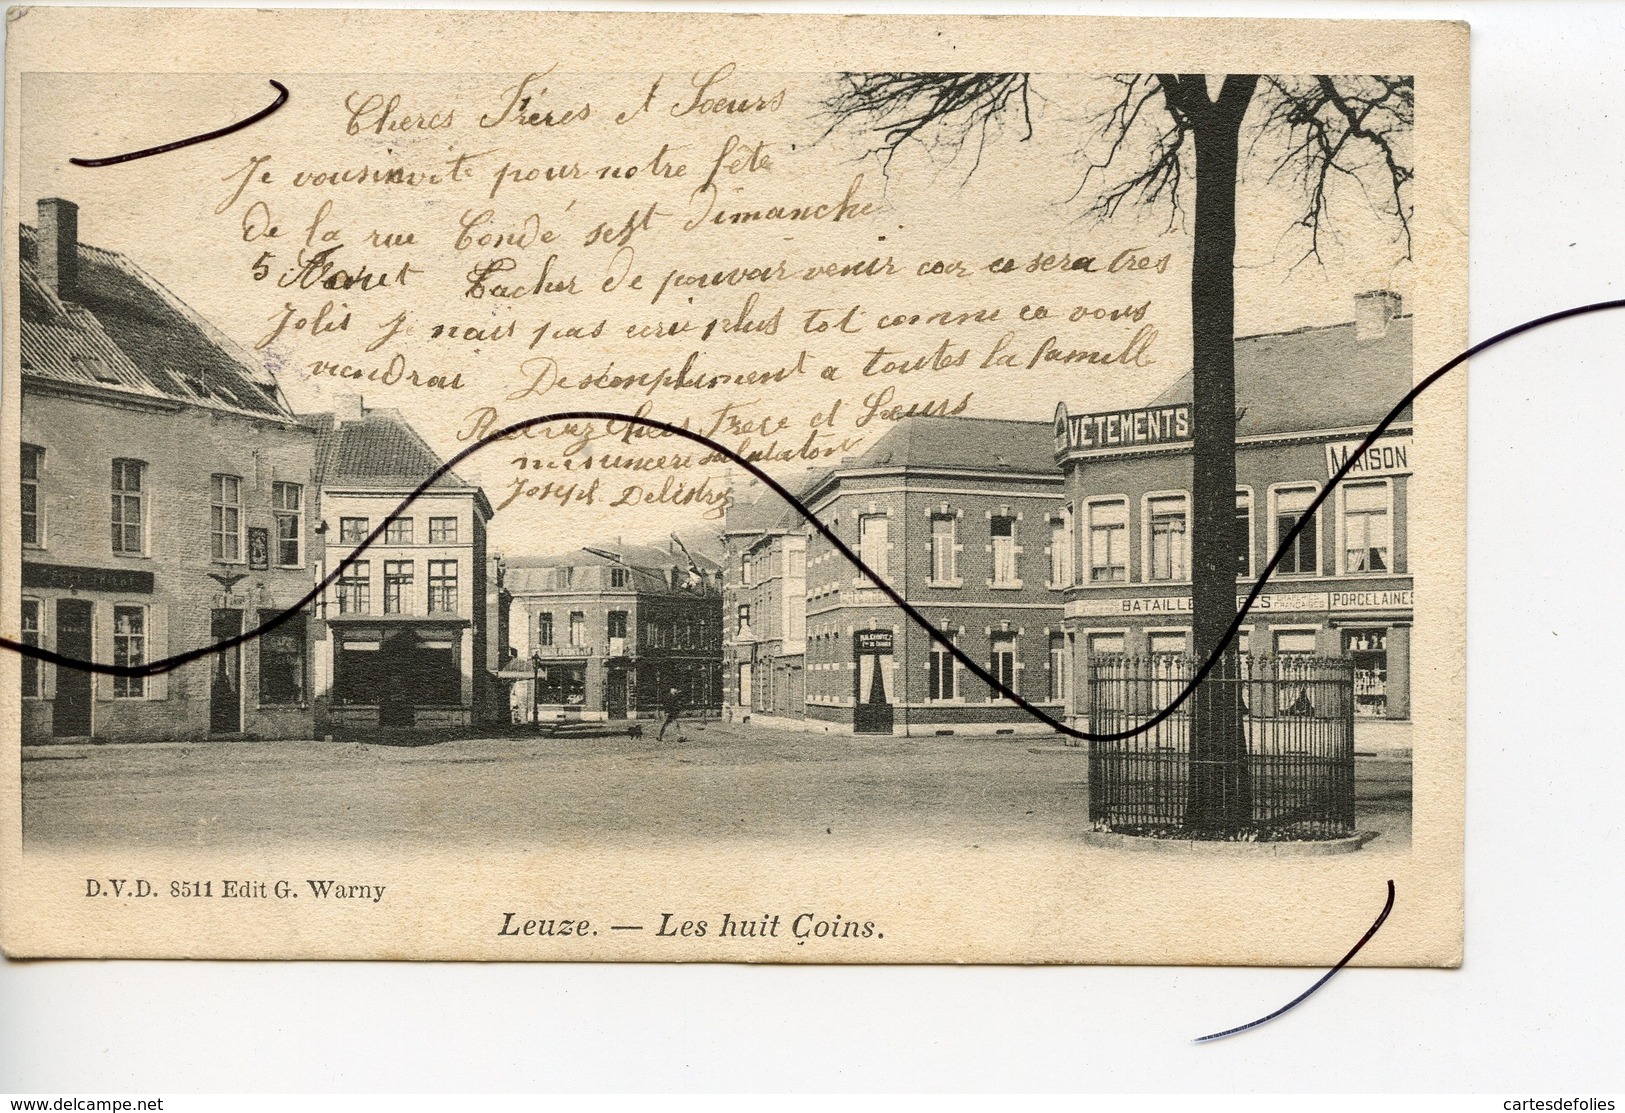 Cheres Fréres et Soeurs
Je vous invite pour notre fête
de la rue Condé sest dimanche
5 Aout Tacher de pouvoir venir car ce sera tres
Jolis Je nais pas ecrie plus tot comme ca vous
viendrai Des complument a toutes la famill
Recevez Chers Frere et Soeurs
mes sincere salutation
Joseph
VÊTEMENTS
MAISON
BATAILLE
PORCELAINES
D.V.D. 8511 Edit G. Warny
Leuze. — Les huit Coins.
www.delcampe.net
cartesdefolies